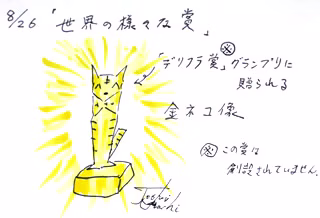 8/26 「世界の様々な賞」
「デリフラ賞」※グランプリに
贈られる
金ネコ像
※この賞は
創設されていません.